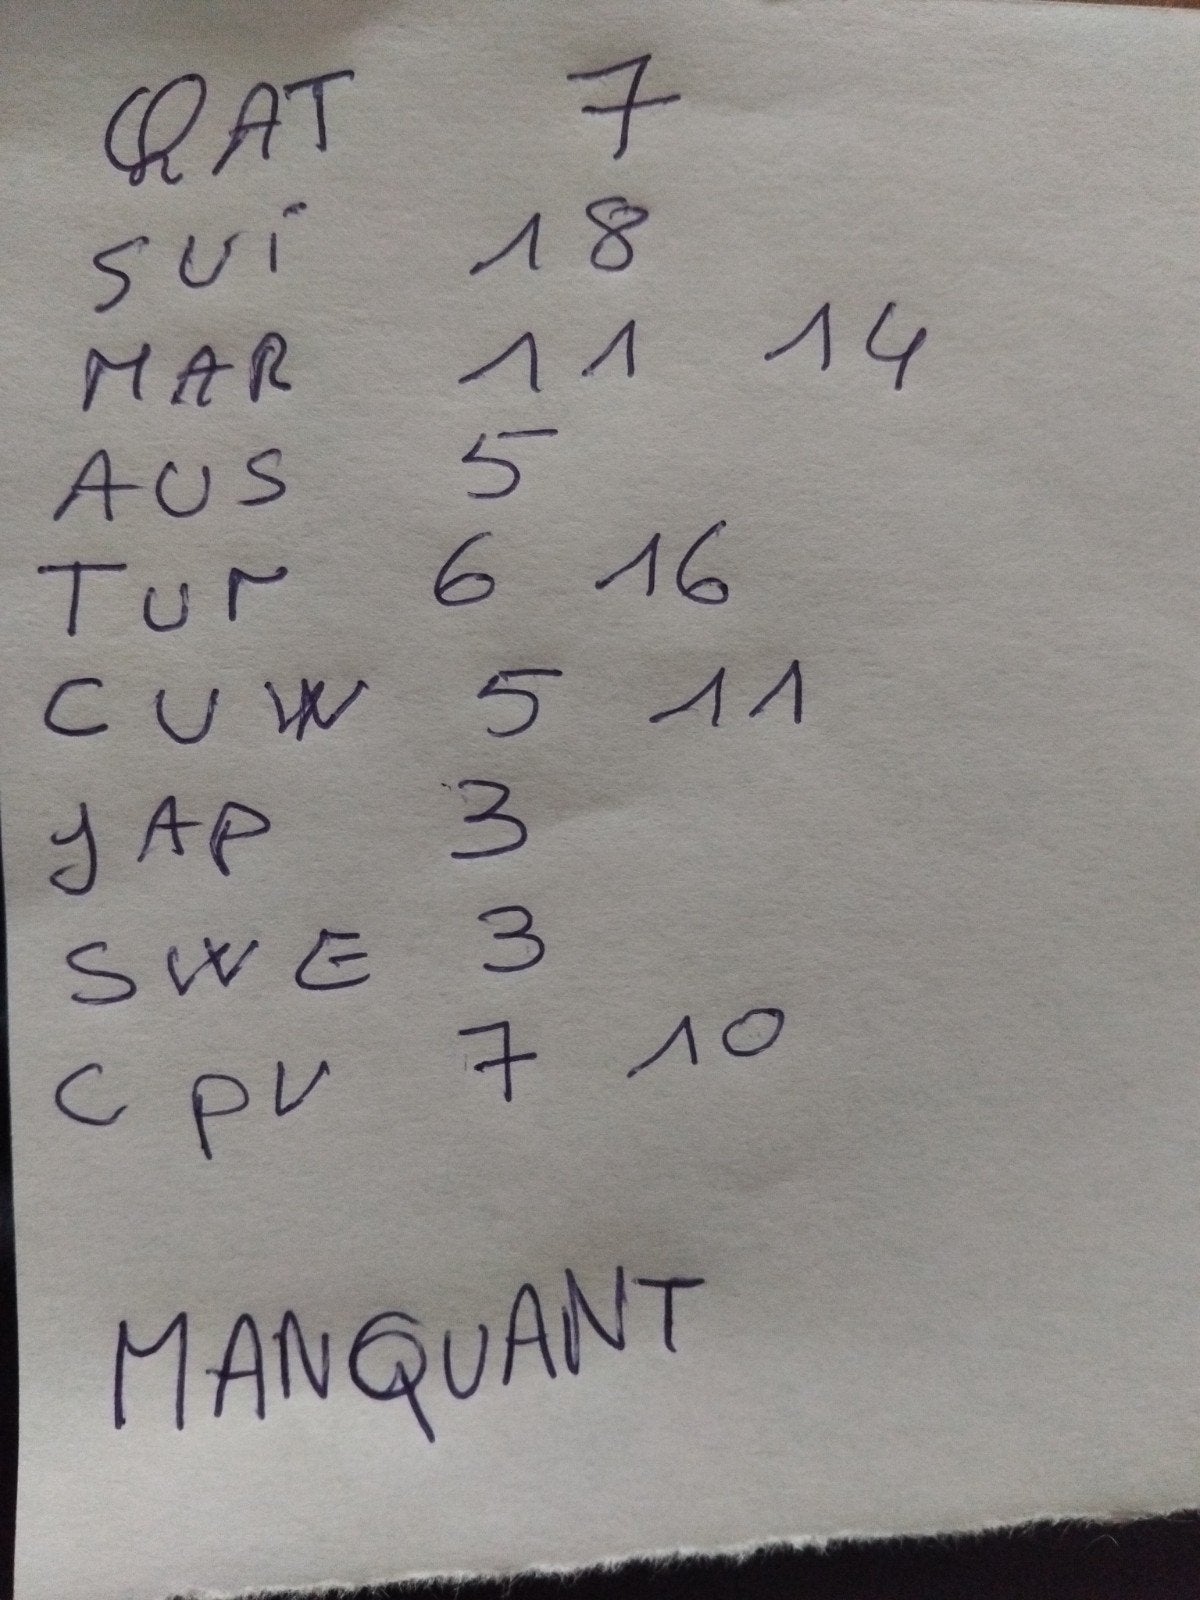 QAT 7
SUi 18
MAR 11 14
AUS 5
TUN 6 16
CUW 5 11
JAP 3
SWE 3
CPV 7 10
MANQUANT